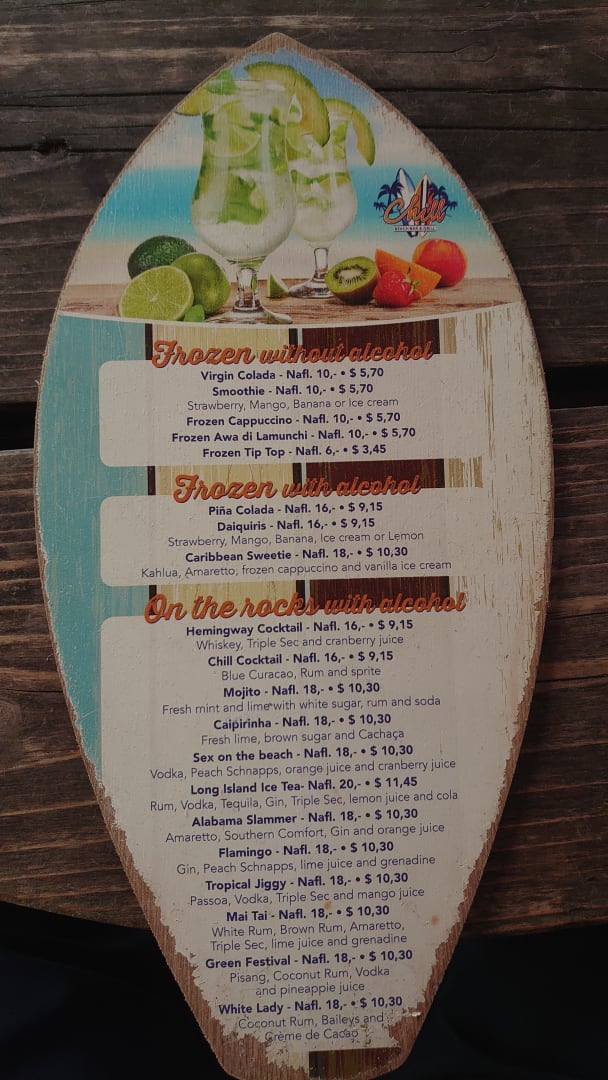 Chill
BEACH BAR & GRILL
Frozen without alcohol
Virgin Colada - Nafl. 10,- • $ 5,70
Smoothie - Nafl. 10,- • $ 5,70
Strawberry, Mango, Banana or Ice cream
Frozen Cappuccino - Nafl. 10,- • $ 5,70
Frozen Awa di Lamunchi - Nafl. 10,- • $ 5,70
Frozen Tip Top - Nafl. 6,- • $ 3,45
Frozen with alcohol
Piña Colada - Nafl. 16,- • $ 9,15
Daiquiris - Nafl. 16,- • $ 9,15
Strawberry, Mango, Banana, Ice cream or Lemon
Caribbean Sweetie - Nafl. 18,- • $ 10,30
Kahlua, Amaretto, frozen cappuccino and vanilla ice cream
On the rocks with alcohol
Hemingway Cocktail - Nafl. 16,- • $ 9,15
Whiskey, Triple Sec and cranberry juice
Chill Cocktail - Nafl. 16,- • $ 9,15
Blue Curacao, Rum and sprite
Mojito - Nafl. 18,- • $ 10,30
Fresh mint and lime with white sugar, rum and soda
Caipirinha - Nafl. 18,- • $ 10,30
Fresh lime, brown sugar and Cachaça
Sex on the beach - Nafl. 18,- • $ 10,30
Vodka, Peach Schnapps, orange juice and cranberry juice
Long Island Ice Tea- Nafl. 20,- • $ 11,45
Rum, Vodka, Tequila, Gin, Triple Sec, lemon juice and cola
Alabama Slammer - Nafl. 18,- • $ 10,30
Amaretto, Southern Comfort, Gin and orange juice
Flamingo - Nafl. 18,- • $ 10,30
Gin, Peach Schnapps, lime juice and grenadine
Tropical Jiggy - Nafl. 18,- • $ 10,30
Passoa, Vodka, Triple Sec and mango juice
Mai Tai - Nafl. 18,- • $ 10,30
White Rum, Brown Rum, Amaretto,
Triple Sec, lime juice and grenadine
Green Festival - Nafl. 18,- • $ 10,30
Pisang, Coconut Rum, Vodka
and pineapple juice
White Lady - Nafl. 18,- • $ 10,30
Coconut Rum, Baileys and
Crème de Cacao